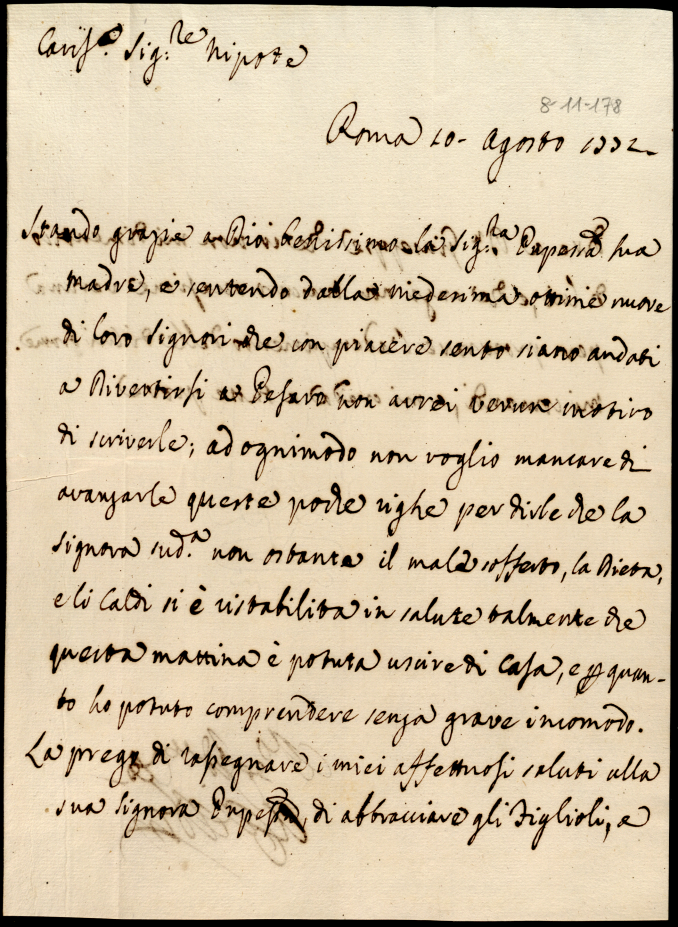 Cariss.o Sig.re Nipote
8-11-178
Roma 10 - Agosto 1332.
Stando grazie a Dio benissimo la Sig.ra sua
madre, e sentendo dalla medesima ottime nuove
di loro Signori che con piacere sento siano andati
a Divertirsi a Pesaro non avrei verun motivo
di scriverle; ad ognimodo non voglio mancare di
avanzarle queste poche righe per dirle che la
Signora sud.a non ostante il male sofferto, la Dieta,
e li Caldi si è ristabilita in salute talmente che
questa mattina è potuta uscire di Casa, e p quan-
to ho potuto comprendere senza grave incomodo.
La prego di rassegnare i miei affettuosi saluti alla
sua Signora di abbracciare gli Figlioli, e